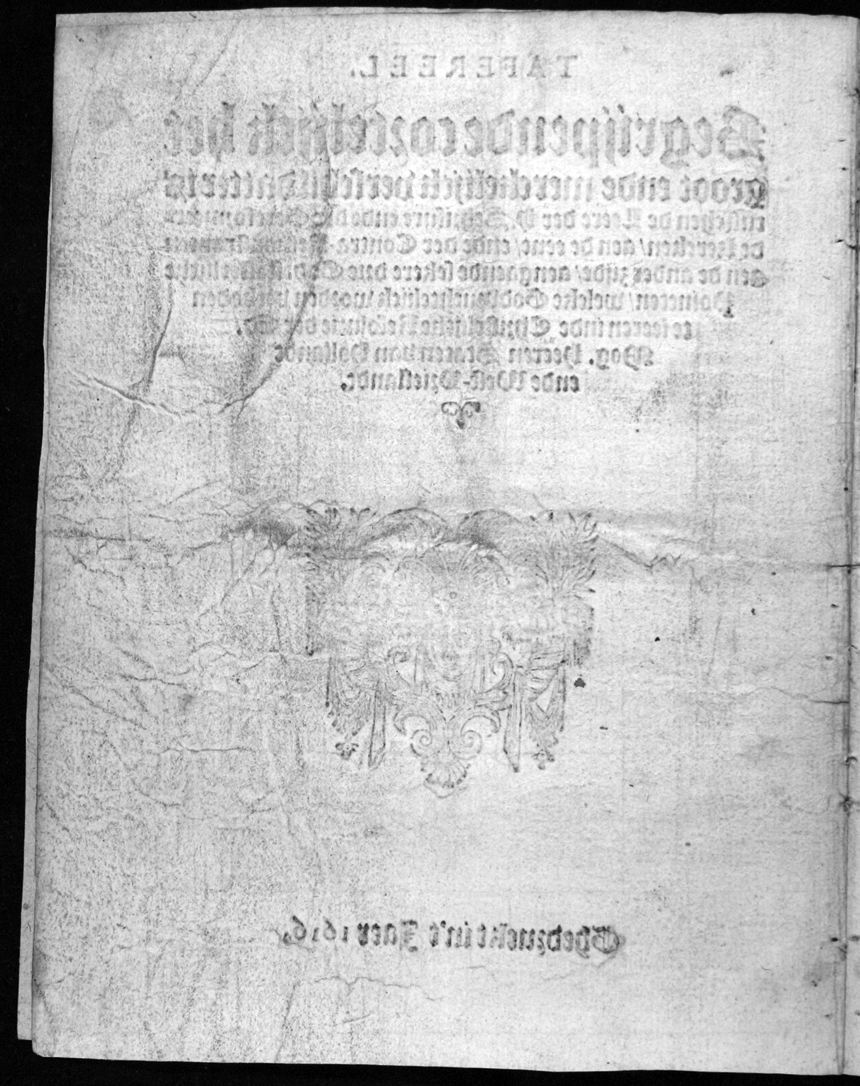 TAFEREEL.
Begrijpende cortelijck het
groot ende merckelijck verschil datter is
tusschen de Leere der H. Schrifture ende der Gereformeerde
Kercken/ aen de eene/ ende der Contra-Remonstranten
aen de ander zijde/ aengaende sekere dꝛie
Poincten/ welcke Godtvruchtelijck worden verboden
te leeren inde Christelijcke Resolutie der Ed.
Mog. Heeren Staten van Hollandt
ende West-Vrieslandt.
Ghedꝛuckt in't Jaer 1616.